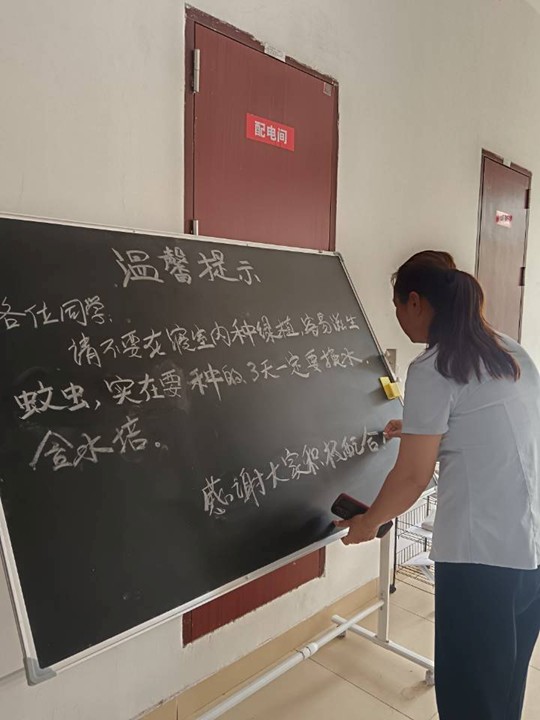 配电间
温馨提示
各位同学:
请不要在寝室内种绿植,容易滋生
蚊虫,实在要种的,3天一定要换水,
含水培。
感谢大家积极配合